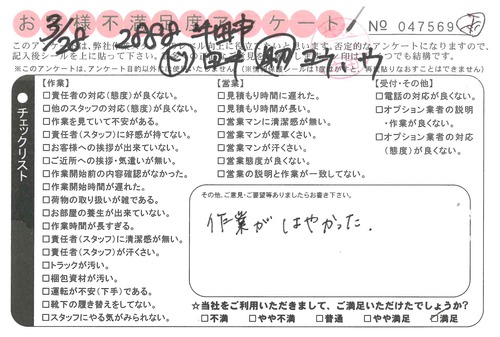 お客様不満足度アンケート! № 047569
3/28
このアンケートは、弊社作業
否定的なアンケートになりますので、
記入後シールを上に貼って下さい。
※このアンケートは、アンケート目的以外には
【作業】
□責任者の対応(態度)が良くない。
□他のスタッフの対応(態度)が良くない。
□作業を見ていて不安がある。
□責任者(スタッフ)に好感が持てない。
□お客様への挨拶が出来ていない。
□ご近所への挨拶・気遣いが無い。
□作業開始前の内容確認がなかった。
□作業開始時間が遅れた。
□荷物の取り扱いが雑である。
□お部屋の養生が出来ていない。
□作業時間が長すぎる。
□責任者(スタッフ)に清潔感が無い。
□責任者(スタッフ)が汗くさい。
□トラックが汚い。
□梱包資材が汚い。
□運転が不安(下手)である。
□靴下の履き替えをしてない。
□スタッフにやる気がみられない。
【営業】
□見積もり時間に遅れた。
□見積もり時間が長い。
□営業マンに清潔感が無い。
□営業マンが煙草くさい。
□営業マンが汗くさい。
□営業態度が良くない。
□営業の説明と作業が一致してない。
【受付・その他】
□電話の対応が良くない。
□オプション業者の説明
・作業が良くない。
□オプション業者の対応
(態度)が良くない。
●チェックリスト
その他、ご意見・ご要望等ありましたらお書き下さい。
作業がはやかった。
☆当社をご利用いただきまして、ご満足いただけたでしょうか?
□不満 □やや不満 □普通 □やや満足 □満足